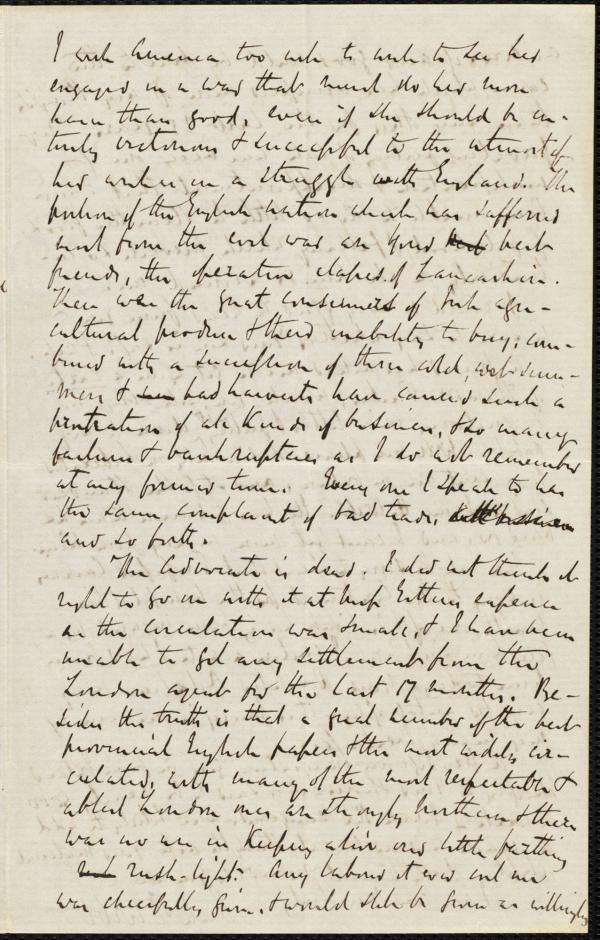 I wish America too well to wish to see her
engaged in a war that must do her more
harm than good, even if she should be en-
tirely victorious & successful to the utmost of
her wishes in a struggle with England. The
portion of the English nation which has suffered
most from the civil war are your best
friends, the operative classes of Lancashire.
These were the great consumers of Irish agri-
cultural produce & their inability to buy, com-
bined with a succession of three cold, wet sum-
mers & bad harvests have caused such a
prostration of all kinds of business, & so many
failures & bankruptcies as I do not remember
at any former time. Every one I speak to has
the same complaint of bad trade, little business
and so forth.
The Advocate is dead. I did not think it
right to go on with it at Miss Estlin's expense
as the circulation was small, & I have been
unable to get any settlement from the
London agent for the last 17 months. Be-
sides the truth is that a great number of the best
provincial English papers & the most widely cir-
culated, with many of the most respectable &
ablest London ones are strongly Northern & there
was no use in keeping alive our little farthing
rush-light. Any labour it cost me
was cheerfully given, & would still be given as willingly